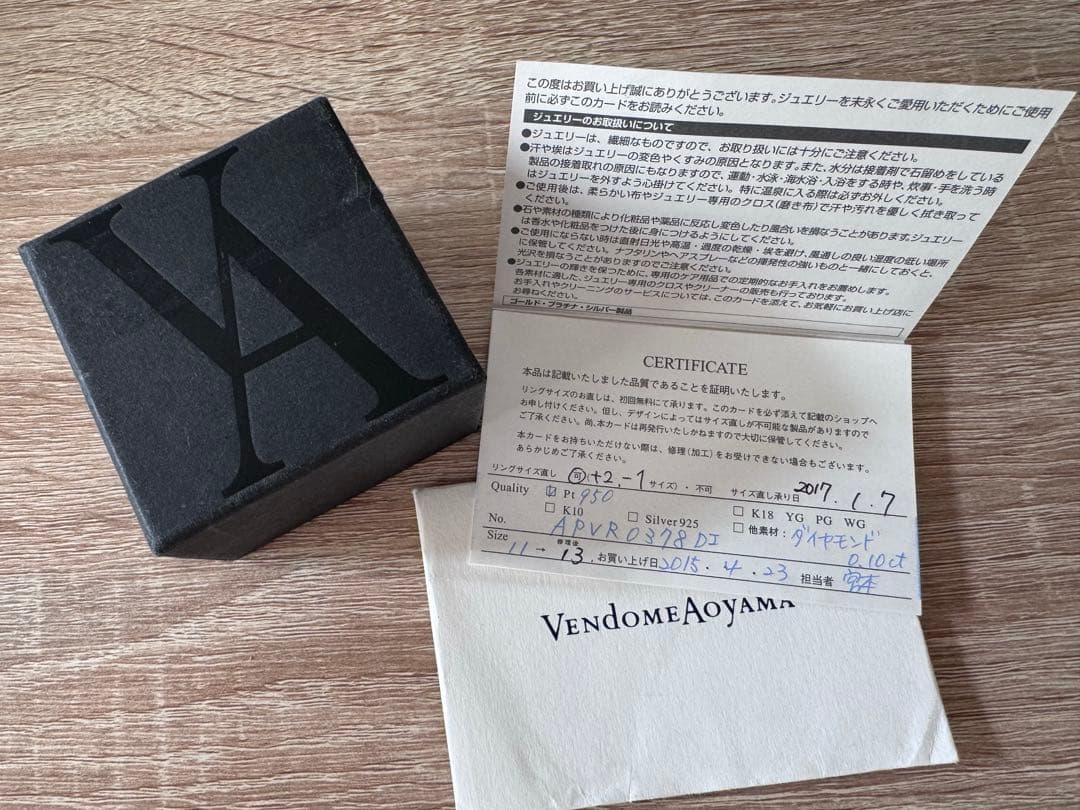 VA
この度はお買い上げ誠にありがとうございます。ジュエリーを末永くご愛用いただくためにご使用
前に必ずこのカードをお読みください。
ジュエリーのお取扱いについて
●ジュエリーは、繊細なものですので、お取り扱いには十分にご注意ください。
●汗や埃はジュエリーの変色やくすみの原因となります。また、水分は接着剤で石留めをしている
製品の接着取れの原因にもなりますので、運動・水泳・海水浴・入浴をする時や、炊事・手を洗う時
はジュエリーを外すよう心掛けてください。特に温泉に入る際は必ずお外しください。
●ご使用後は、柔らかい布やジュエリー専用のクロス(磨き布)で汗や汚れを優しく拭き取って
ください。
●石や素材の種類により化粧品や薬品に反応し変色したり風合いを損なうことがあります。ジュエリー
は香水や化粧品をつけた後に身につけるようにしてください。
●ご使用にならない時は直射日光や高温・過度の乾燥・埃を避け、風通しの良い湿度の低い場所
に保管してください。ナフタリンやヘアスプレーなどの揮発性の強いものと一緒にしておくと、
光沢を損なうことがありますのでご注意ください。
●ジュエリーの輝きを保つために、専用のケア用品での定期的なお手入れをお薦めします。
各素材に適した、ジュエリー専用のクロスやクリーナーの販売も行っております。
お手入れやクリーニングのサービスについては、このカードを添えて、お気軽にお買い上げ店に
お尋ねください。
ゴールド・プラチナ・シルバー製品
CERTIFICATE
本品は記載いたしました品質であることを証明いたします。
リングサイズのお直しは、初回無料にて承ります。このカードを必ず添えて記載のショップへ
お申し付けください。但し、デザインによってはサイズ直しが不可能な製品がありますので
ご了承ください。尚、本カードは再発行いたしかねますので大切に保管してください。
本カードをお持ちいただけない際は、修理(加工)をお受けできない場合もございます。
あらかじめご了承ください。
リングサイズ直し 可(+2,-1サイズ)・不可 サイズ直し承り日 2017.1.7
Quality ☑ Pt 950 □ K18 YG PG WG
□ K10 □ Silver925 □ 他素材: ダイヤモンド
No. APVR0378DI 0.10ct
Size 11 → 修理後 13. お買い上げ日 2015.4.23 担当者 宮本
VENDOME AOYAMA